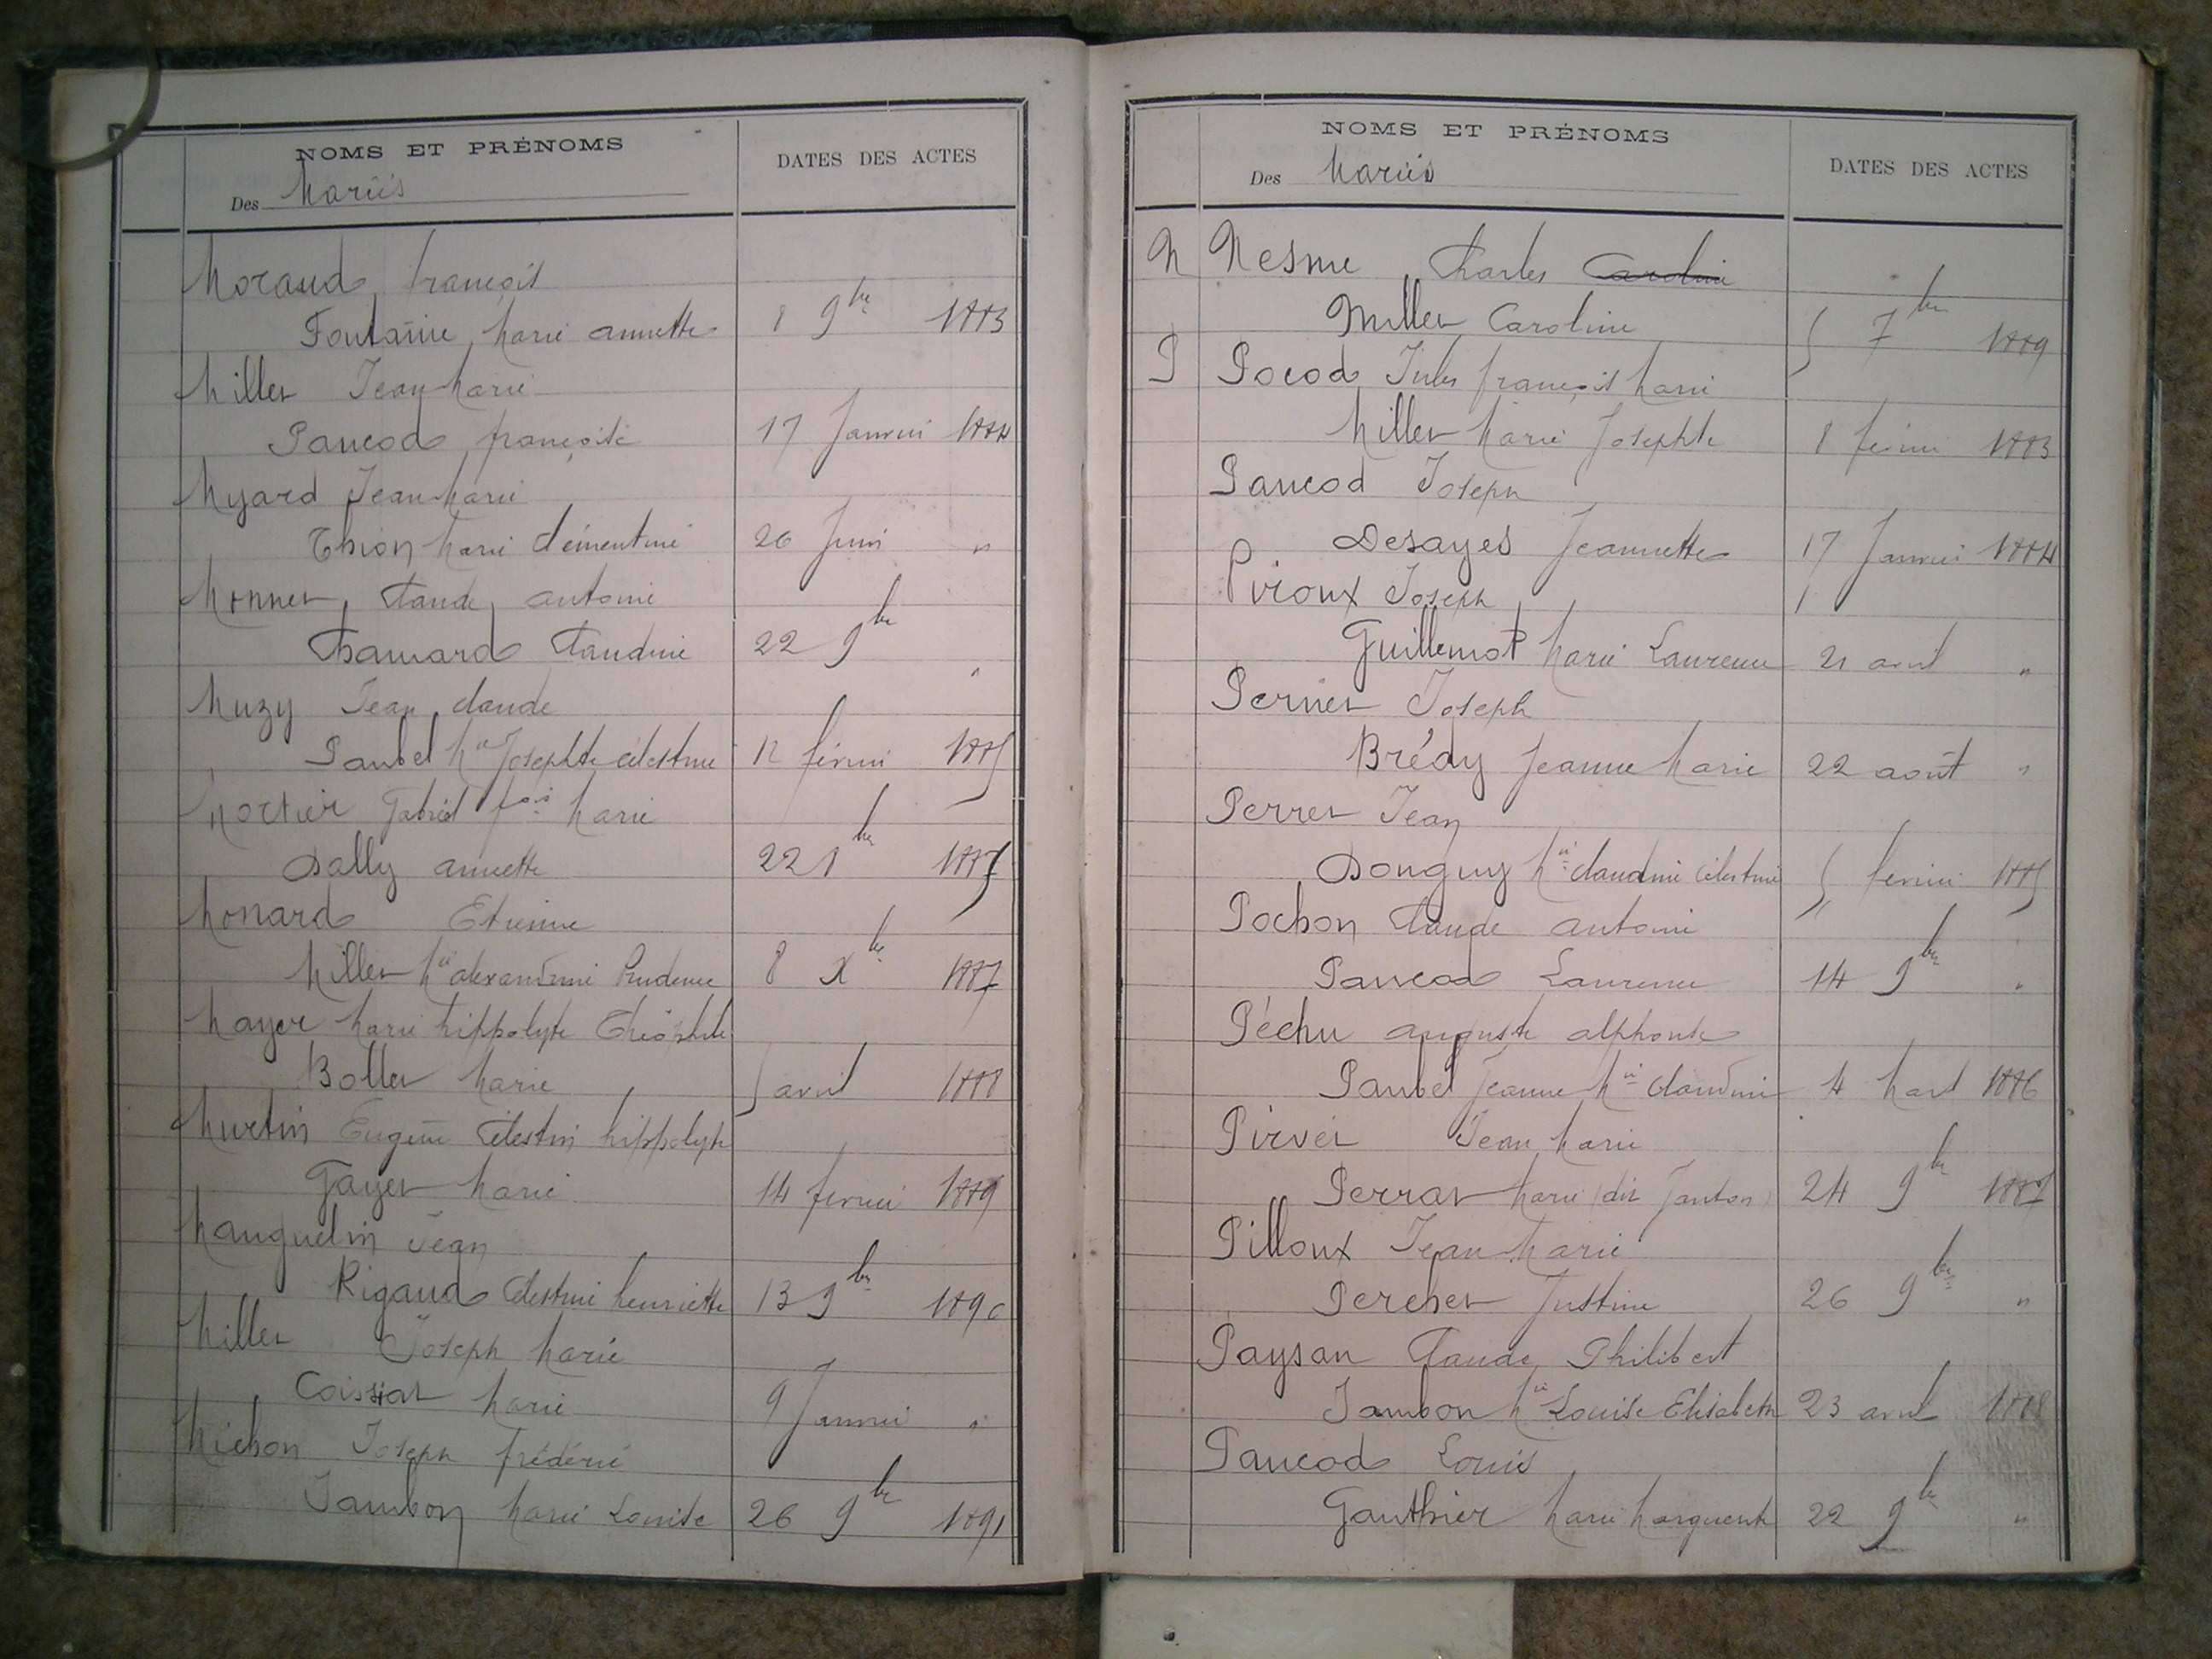 NOMS ET PRÉNOMS
Des Mariés
DATES DES ACTES
Moraud François
Fontaine Marie annette 8 9bre 1883
Millet Jean Marie
Paucod françoise 17 Janvier 1884
Myard Jean Marie
Thion Marie Clémentine 26 Juin "
Monnet Claude antoine
Chamard Claudine 22 9bre "
Muzy Jean Claude
Paubel Mie Josephte célestine 12 février 1885
Mortier Gabriel fois Marie
Dally annette 22 8bre 1885
Monard Etienne
Millet Mie alexandrine Prudence 8 Xbre 1887
Mayer Marie hippolyte Théophile
Bollet Marie 5 avril 1888
Murtin Eugène Célestin hippolyte
Gayet Marie 14 février 1889
Manguelin Jean
Rigaud Célestine henriette 13 9bre 1890
Millet Joseph Marie
Coissiat Marie 9 Janvier "
Michon Joseph frédéric
Jambon Marie Louise 26 9bre 1891
NOMS ET PRÉNOMS
Des Mariés
DATES DES ACTES
N Nesme Charles Caroline
Millet Caroline 5 7bre 1889
P Pocod Jules françois Marie
Millet Marie Josephte 8 février 1883
Paucod Joseph
Desayes Jeannette 17 Janvier 1884
Piroux Joseph
Guillemot Marie Laurence 21 avril "
Pernet Joseph
Brédy Jeanne Marie 22 août "
Perret Jean
Donguy Mie Claudine Célestine 5 février 1885
Pochon Claude antoine
Paucod Laurence 14 9bre "
Péchu auguste alphonse
Paubel Jeanne Mie Claudine 4 Mars 1886
Pirvet Jean Marie
Perrat Marie (dit Janton) 24 9bre 1887
Pilloux Jean Marie
Perchet Justine 26 9bre "
Paysan Claude Philibert
Jambon Mie Louise Elisabeth 23 avril 1888
Paucod Louis
Gauthier Marie Marguerite 22 9bre "